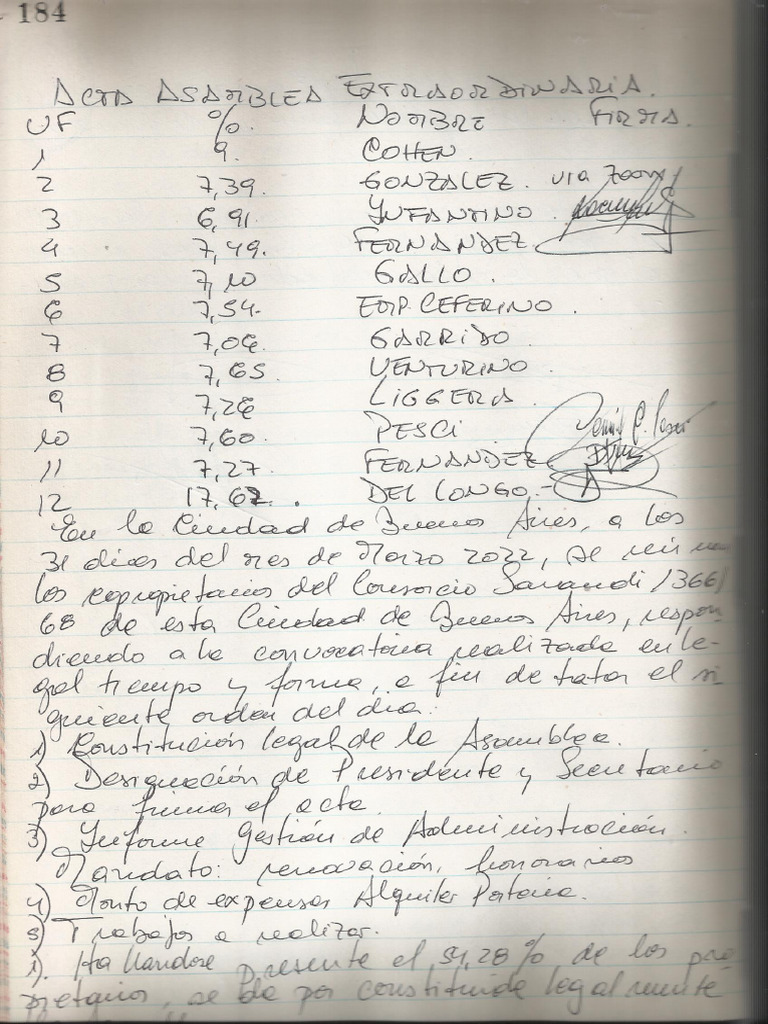 184
ACTA ASAMBLEA EXTRAORDINARIA.
UF % NOMBRE FIRMA.
1 9. COHEN.
2 7,39. GONZALEZ. via Zoom
3 6,91. INFANTINO.
4 7,49. FERNANDEZ
5 7,10 GALLO.
6 7,54. EDIP. CEFERINO.
7 7,06. GARRIDO
8 7,65. VENTURINO.
9 7,26 LIGGERA.
10 7,60. PESCI
11 7,27. FERNANDEZ
12 17,67. DEL LONGO.-
En la Ciudad de Buenos Aires, a los
31 días del mes de Marzo 2022, se reúnen
los copropietarios del Consorcio Sarandi 1366/
68 de esta Ciudad de Buenos Aires, respon-
diendo a la convocatoria realizada en le-
gal tiempo y forma, a fin de tratar el si
guiente orden del día:
1) Constitución legal de la Asamblea.
2) Designación de Presidente y Secretario
para firmar el acta
3) Informe Gestión de Administración.
Mandato: renovación, honorarios
4) Monto de expensas Alquiler Portería.
5) Trabajos a realizar.
1). Hallandose presente el 54,28% de los pro
pietarios, se da por constituida legalmente